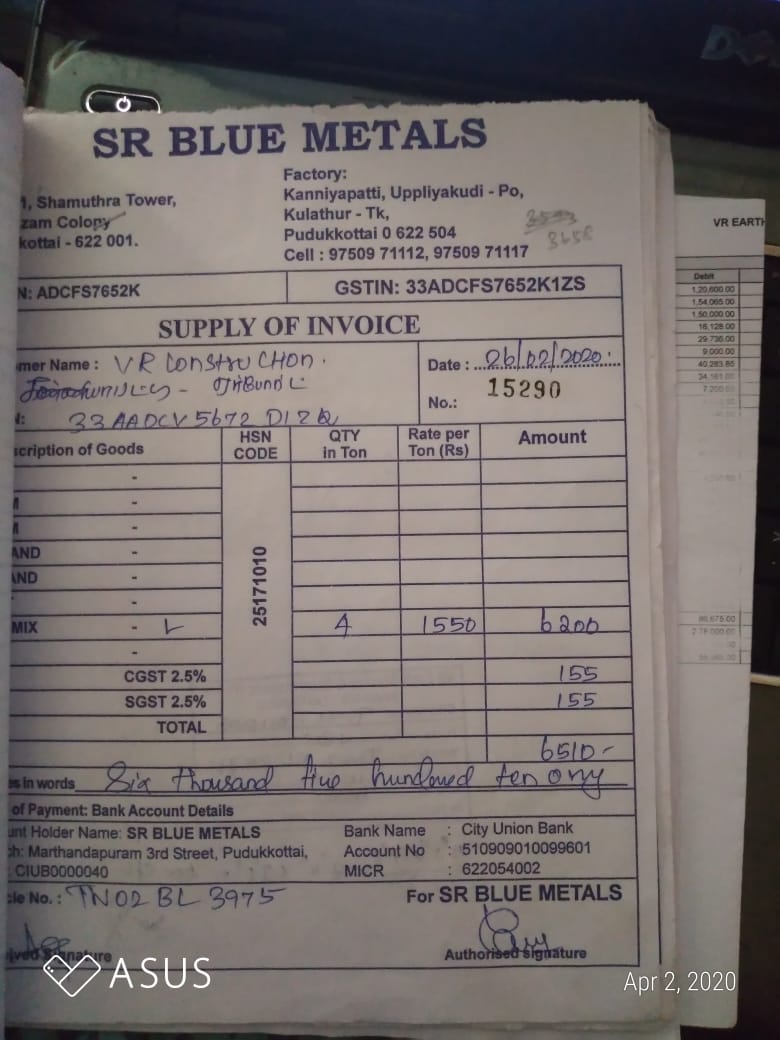 SR BLUE METALS
1, Shamuthra Tower,
zam Colony
kottai - 622 001.
Factory:
Kanniyapatti, Uppliyakudi - Po,
Kulathur - Tk,
Pudukkottai 0 622 504
Cell : 97509 71112, 97509 71117
3658
N: ADCFS7652K
GSTIN: 33ADCFS7652K1ZS
SUPPLY OF INVOICE
mer Name : VR Construction.
Date : 26/02/2020
No.: 15290
N: 33 AADCV 5672 D1ZQ
scription of Goods
HSN CODE
QTY in Ton
Rate per Ton (Rs)
Amount
-
M -
M -
AND -
AND -
-
25171010
MIX - 4 1550 6200
-
CGST 2.5% 155
SGST 2.5% 155
TOTAL
6510-
es in words Six thousand five hundred ten ony
of Payment: Bank Account Details
unt Holder Name: SR BLUE METALS
ch: Marthandapuram 3rd Street, Pudukkottai,
: CIUB0000040
Bank Name : City Union Bank
Account No : 510909010099601
MICR : 622054002
cle No. : TN02 BL 3975
For SR BLUE METALS
ived Signature
Authorised signature
VR EARTH
Debit
1,20,600.00
1,54,065.00
1,50,000.00
16,128.00
29,736.00
9,000.00
40,283.85
ASUS
Apr 2, 2020
DELL